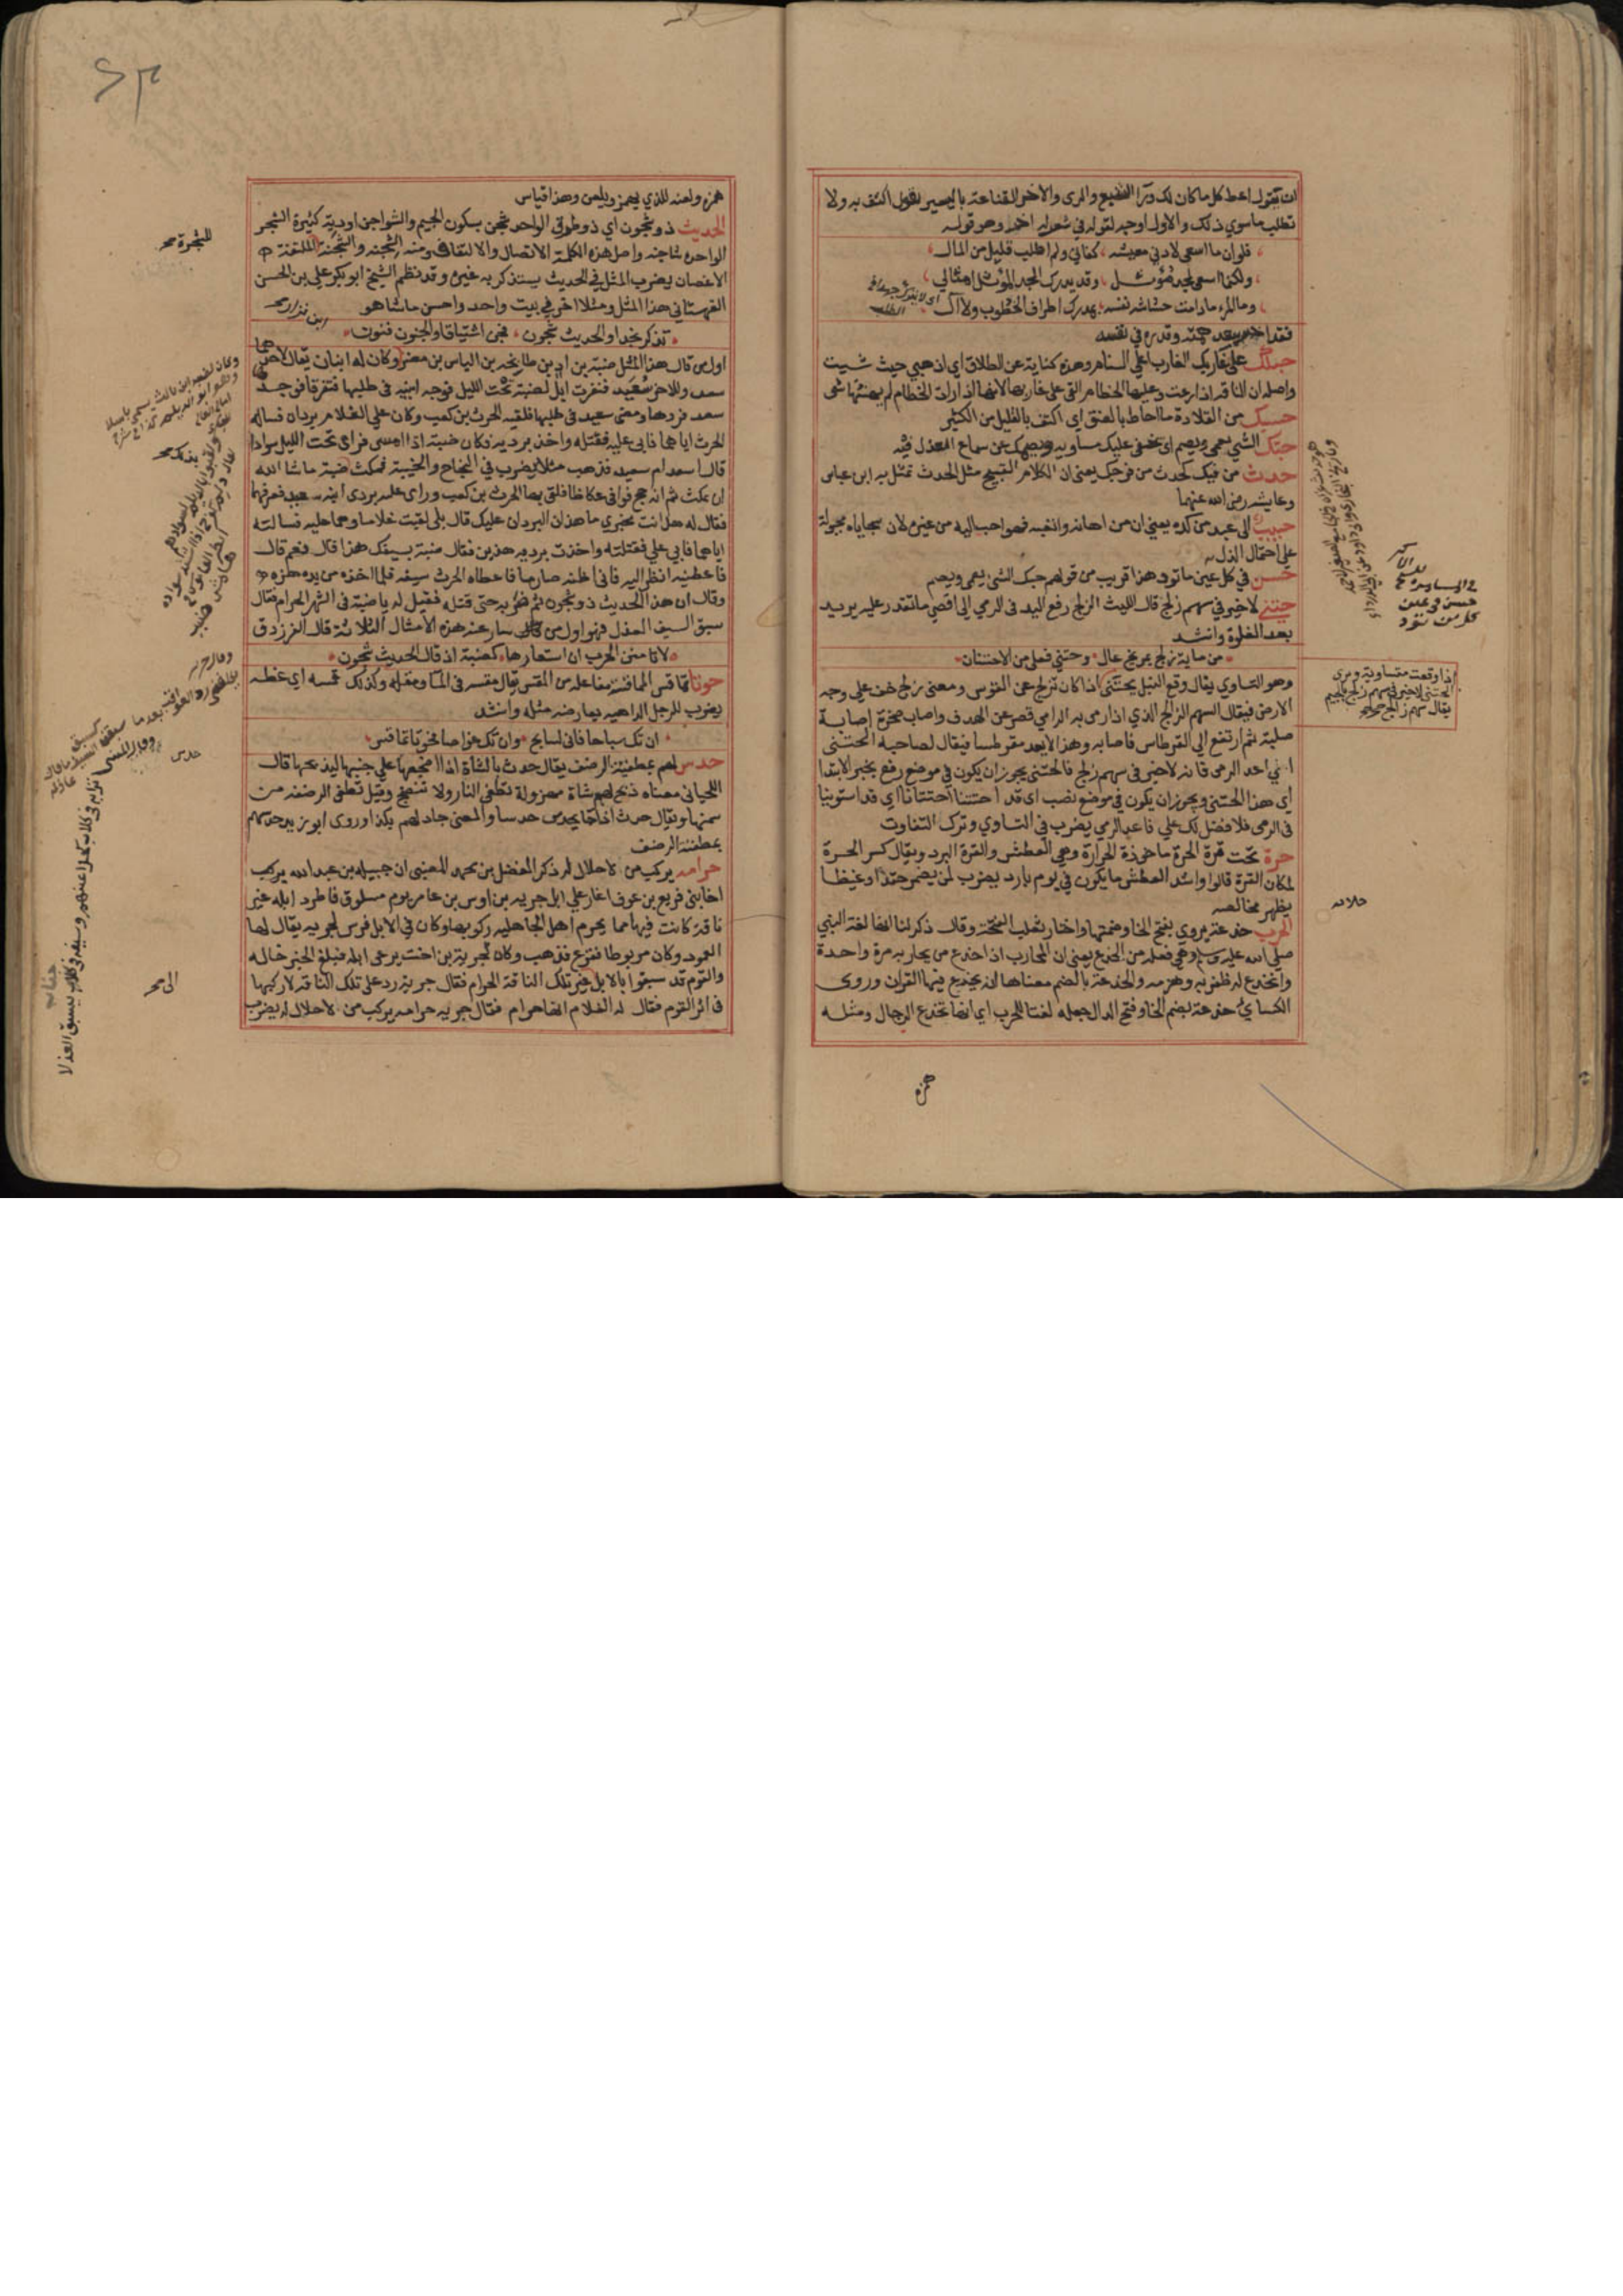 ان يقول اعط كل ما كان لك ورآ الشبع والري والاخر القناعة باليسير يقول اكتف به ولا
تطلب ما سوي ذلك والاول اوجه لقوله في شعر له اخر وهو قوله
فلو ان ما اسعى لادني معيشة، كفاني ولم اطلب قليل من المال
ولكنما اسعى لمجد مؤثل، وقد يدرك المجد المؤثل امثالي
وما المرء ما دامت حشاشة نفسه، بمدرك اطراف الخطوب ولا آل
فقد اخبر ببعد همته وقدره في نفسه
حبلك على غاربك الغارب اعلي السنام وهذه كناية عن الطلاق اي اذهبي حيث شيت
واصله ان الناقة اذا رعت وعليها الخطام القي علي غاربها لانها اذا رات الخطام لم يهنئها شي
حسبك من القلادة ما احاط بالعنق اي اكتف بالقليل من الكثير
حبك الشي يعمي ويصم اي يخفي عليك مساويه ويصمك عن سماع العذل فيه
حدث من فيك كحدث من فرجك يعني ان الكلام القبيح مثل الحدث تمثل به ابن عباس
وعايشه رضي الله عنهما
حبيب الي عبد من كده يعني ان من اهانه واتعبه فهو احب اليه من غيره لان سجاياه مجبولة
علي احتمال الذل
حسن في كل عين ما تود هذا قريب من قولهم حبك الشي يعمي ويصم
حتني لا خير في سهم زلج قال الليث الزلج رفع اليد في الرمي الي اقصي ما تقدر عليه يريد
بعد الغلوة وانشد
من ماية زلج بمريخ غال وحتني فعلي من الاحتتان
وهو التساوي يقال وقع النبل حتني اذا كان نزلج عن القوس ومعني زلج خف علي وجه
الارض فيقال السهم الزالج الذي اذا رمي به الرامي قصر عن الهدف واصاب صخرة اصابة
صلبة ثم ارتفع الي القرطاس فاصابه وهذا لا يعد مقرطسا فيقال لصاحبه الحتني
اي اعد الرمي فانه لا خير في سهم زلج فالحتني يجوز ان يكون في موضع رفع بخبر الابتدا
اي هذا الحتني ويجوز ان يكون في موضع نصب اي قد احتتنا احتتانا اي قد استوينا
في الرمي فلا فضل لك علي فاعد الرمي يضرب في التساوي وترك التفاوت
حرة تحت قرة الحرة ماخوذة الحرارة وهي العطش والقرة البرد ويقال كسر الحرة
لمكان القرة قالوا واشد العطش ما يكون في يوم بارد يضرب لمن يضمر حقدا وغيظا
يظهر مخالصة
الحرب خدعة يروي بفتح الخا وضمها واختار ثعلب الفتحة وقال ذكر لنا انها لغة النبي
صلى الله عليه وسلم وهي فعلة من الخدع يعني ان المحارب اذا خدع من يحاربه مرة واحدة
وانخدع له ظفر به وهزمه والخدعة بالضم معناها انه يخدع فيها القران وروى
الكسائي خدعة بضم الخا وفتح الدال جعله لغتا للحرب اي انها تخدع الرجال ومثله
همزه
اذا وقعت متساوية ويروى
الحتني لا خير في سهم زلج بالجيم
يقال سهم زالج
همزه ولمزه للذي يهمز ويلمز وهذا قياس
الحديث ذو شجون اي ذو طرق الواحد شجن بسكون الجيم والشواجن اودية كثيرة الشجر
الواحدة شاجنه واصل هذه الكلمة الاتصال والالتفاف ومنه الشجنه والشجنة الملتفة
الاغصان يضرب المثل في الحديث يستذكر به غيره وقد نظم الشيخ ابو بكر علي بن الحسن
القهستاني هذا المثل ومثلا اخر في بيت واحد واحسن ما شا هو
تذكر نجدا والحديث شجون، فجن اشتياقا والجنون فنون
اول من قال هذا المثل ضبة بن اد بن طابخه بن الياس بن مضر وكان له ابنان يقال لاحدهما
سعد وللاخر سعيد فنفرت ابل لضبة تحت الليل فوجه ابنيه في طلبها فتفرقا فوجد
سعد فردها ومضي سعيد في طلبها فلقيه الحرث بن كعب وكان علي الغلام بردان فساله
الحرث اياهما فابي عليه فقتله واخذ برديه فكان ضبة اذا امسى فراى تحت الليل سوادا
قال اسعد ام سعيد فذهب مثلا يضرب في النجاح والخيبة فمكث ضبة ما شا الله
ان يمكث ثم انه حج فوافي عكاظ فلقي بها الحرث بن كعب وراى عليه بردى ابنه سعيد فعرفهما
فقال له هل انت مخبري ما هذان البردان عليك قال بلى لقيت غلاما وهما عليه فسالته
اياهما فابي علي فقتلته واخذت برديه هذين فقال ضبة بسيفك هذا قال نعم قال
فاعطنيه انظر اليه فاني اظنه صارما فاعطاه الحرث سيفه فلما اخذه من يده هزه
وقال ان هذا الحديث ذو شجون ثم ضربه حتى قتله فقيل له يا ضبة في الشهر الحرام فقال
سبق السيف العذل فهو اول من سار عنه هذه الامثال الثلاثة قال الفرزدق
لا تامنن الحرب ان استعارها كضبة اذ قال الحديث شجون
حوتا تماقس المماقسة مفاعلة من المقس يقال مقسه في الما ومقله وكذلك قمسه اي غطه
يضرب للرجل الداهيه يعارضه مثله وانشد
ان تك سباحا فاني لسابح، وان تك غواصا فحوتا تماقس
حدس لهم بمطفئة الرضف يقال حدث بالشاة اذا اضجعها علي جنبها ليذبحها قال
اللحياني معناه ذبح لهم شاة مهزولة تطفي النار ولا تنضج وقيل تطفي الرضفه من
سمنها ويقال حدث اذا جا يحدس حدسا والمعني جاد لهم بكذا وروى ابو زيد حدسهم
بمطفئة الرضف
حرامه يركب من لا حلال له ذكر المفضل بن محمد الضبي ان جبيله بن عبد الله
اخا بني قريع بن عوف اغار علي ابل جريه بن اوس بن عامر يوم مسلوق فاطرد ابله غير
ناقة كانت فيها مما يحرم اهل الجاهليه ركوبها وكان في الابل فرس لجريه يقال لها
العمود وكان مربوطا ففزع فذهب وكان لجرية بن اخت يرعى ابله فبلغ الخبر خاله
والقوم قد سبقوا بالابل غير تلك الناقة الحرام فقال جريه رد علي تلك الناقة لاركبها
في اثر القوم فقال له الغلام انها حرام فقال جريه حرامه يركب من لا حلال له يضرب